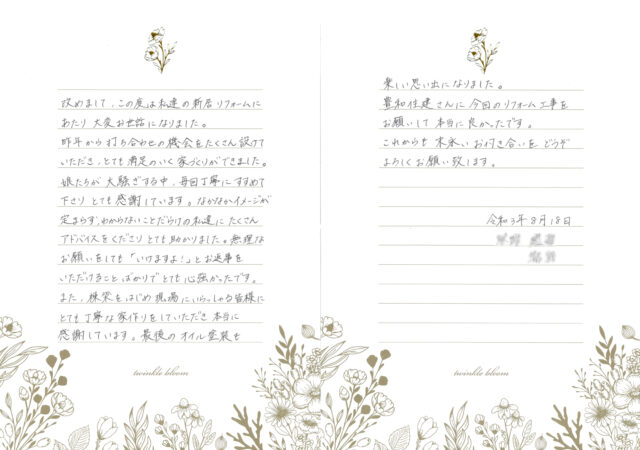 改めまして、この度は私達の新居リフォームに
あたり大変お世話になりました。
昨年から打ち合わせの機会をたくさん設けて
いただき、とても満足のいく家づくりができました。
娘たちが大騒ぎする中、毎回丁寧にすすめて
下さりとても感謝しています。なかなかイメージが
定まらず、わからないことだらけの私達にたくさん
アドバイスをくださりとても助かりました。無理な
お願いをしても「いけますよ!」とお返事を
いただけることばかりでとても心強かったです。
また、棟梁をはじめ現場にいらっしゃる皆様に
とても丁寧な家作りをしていただき本当に
感謝しています。最後のオイル塗装も
twinkle bloom
楽しい思い出になりました。
豊和住建さんに今回のリフォーム工事を
お願いして本当に良かったです。
これからも末永いお付き合いをどうぞ
よろしくお願い致します。
令和3年8月18日
twinkle bloom